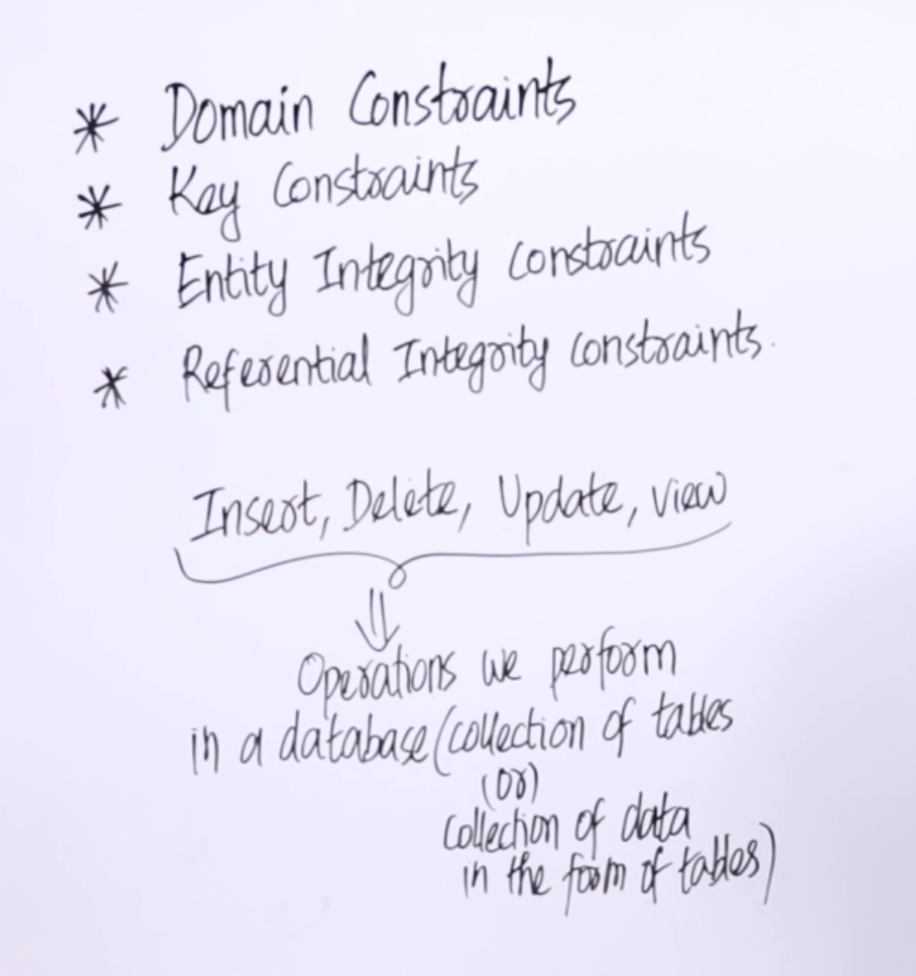 * Domain Constraints
* Key Constraints
* Entity Integrity constraints
* Referential Integrity constraints.
Insert, Delete, Update, view
⇓
Operations we perform
in a database (collection of tables
(or)
collection of data
in the form of tables)